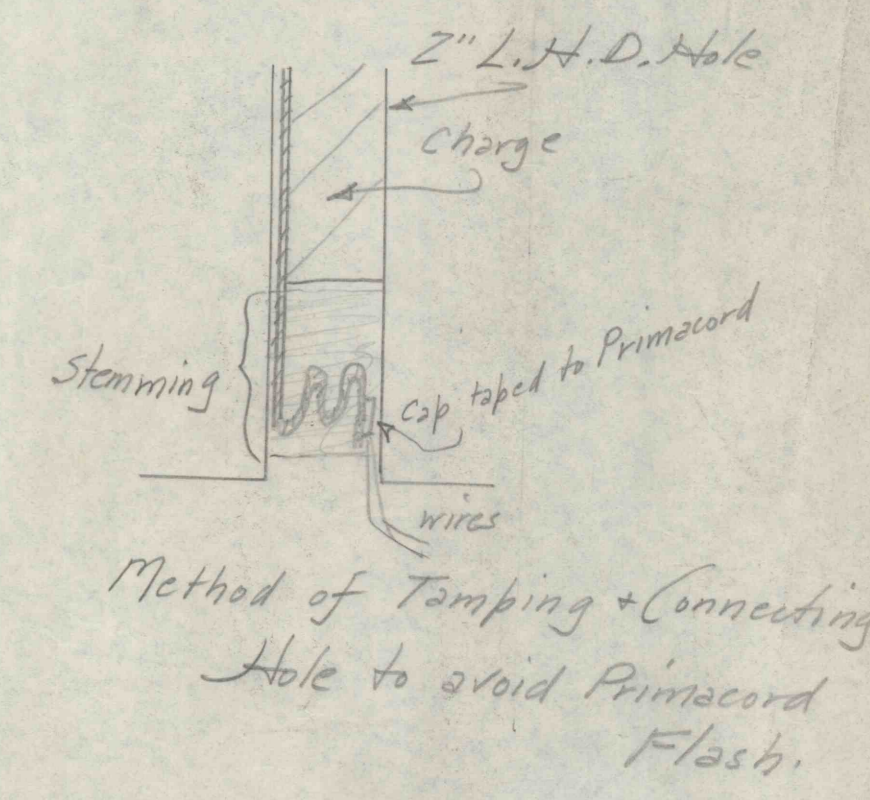 2" L.H.D. Hole
Charge
Stemming
Cap taped to Primacord
wires
Method of Tamping + Connecting
Hole to avoid Primacord
Flash.